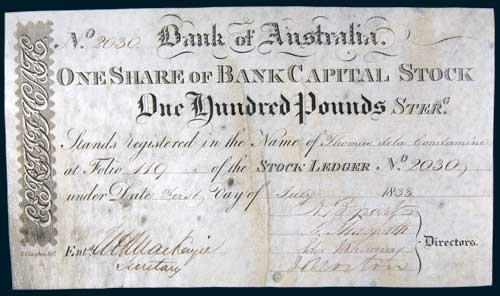 CERTIFICATE
No. 2030. Bank of Australia.
ONE SHARE OF BANK CAPITAL STOCK
One Hundred Pounds STERG.
Stands registered in the Name of Thomas de la Condamine
at Folio 119 of the STOCK LEDGER No. 2030,
under Date First Day of July 1833
Entd. Mackenzie
Secretary
Directors.